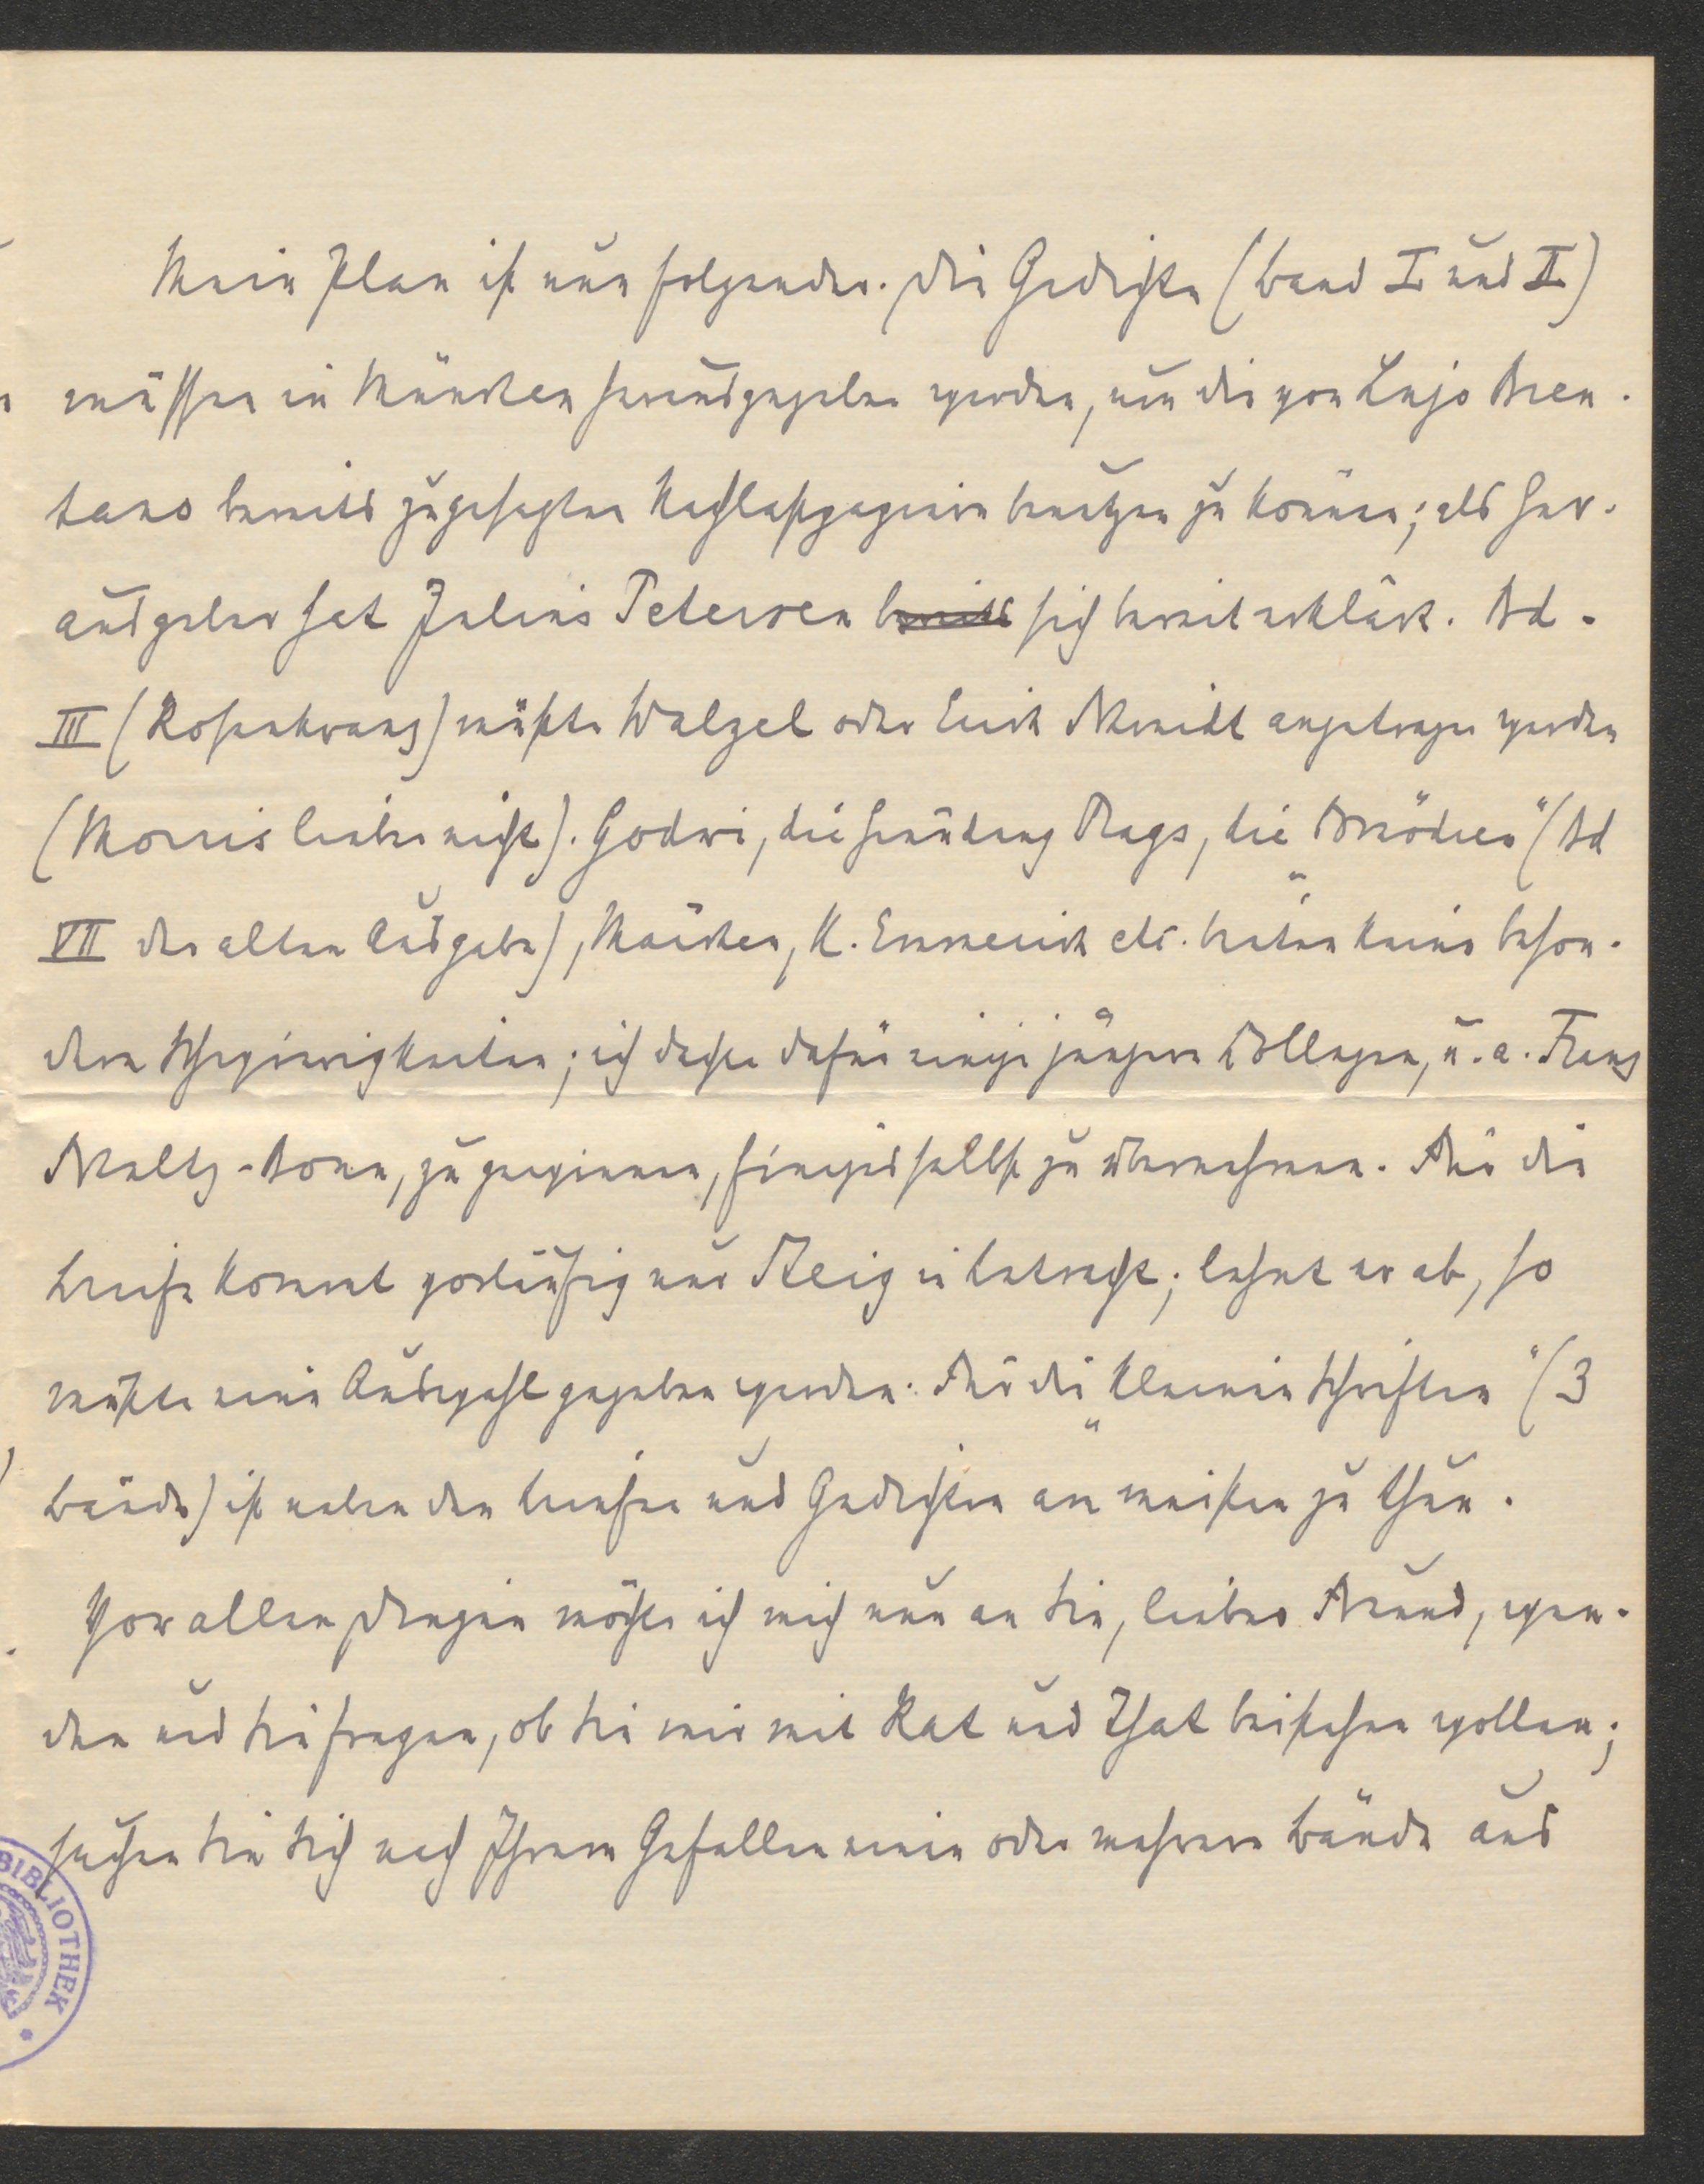 Mein Plan ist nun folgender. Die Gedichte (Band I und II)
müssen in München herausgegeben werden, um die von Lujo Bren-
tano bereits zugesagten Nachlaßpapiere benutzen zu können; als Her-
ausgeber hat Julius Petersen bereits sich bereit erklärt. Bd.
III (Rosenkranz) müßte Walzel oder Erich Schmidt angetragen werden
(Morris lieber nicht). Godwi, die Gründung Prags, die „Comödien“ (Bd
VII der alten Ausgabe), Märchen, K. Emmerich etc. bieten keine beson-
deren Schwierigkeiten; ich dachte dafür einige jüngere Collegen, u. a. Franz
Schultz-Bonn, zu gewinnen, einiges selbst zu übernehmen. Für die
Briefe kommt vorläufig nur Steig in Betracht; lehnt er ab, so
müßte eine Auswahl gegeben werden. Für die „Kleinen Schriften“ (3
Bände) ist neben den Briefen und Gedichten am meisten zu thun.
Vor allen Dingen möchte ich mich nun an Sie, lieber Freund, wen-
den und Sie fragen, ob Sie mir mit Rat und That beistehen wollen;
suchen Sie Sich nach Ihrem Gefallen einen oder mehrere Bände aus
BIBLIOTHEK